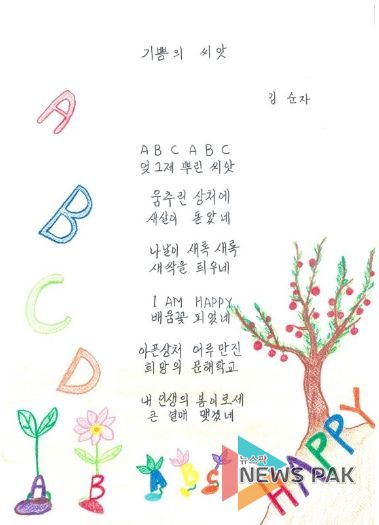 기쁨의 씨앗
김순자
A B C A B C
엊그제 뿌린 씨앗
움추린 상처에
새살이 돋았네
나날이 새록 새록
새싹을 틔우네
I AM HAPPY
배움꽃 피었네
아픈상처 어루만진
희망의 문해학교
내 인생의 봄이로세
큰 열매 맺겠네
A
B
C
D
A B A B S
HAPPY
뉴스팍
NEWS PAK